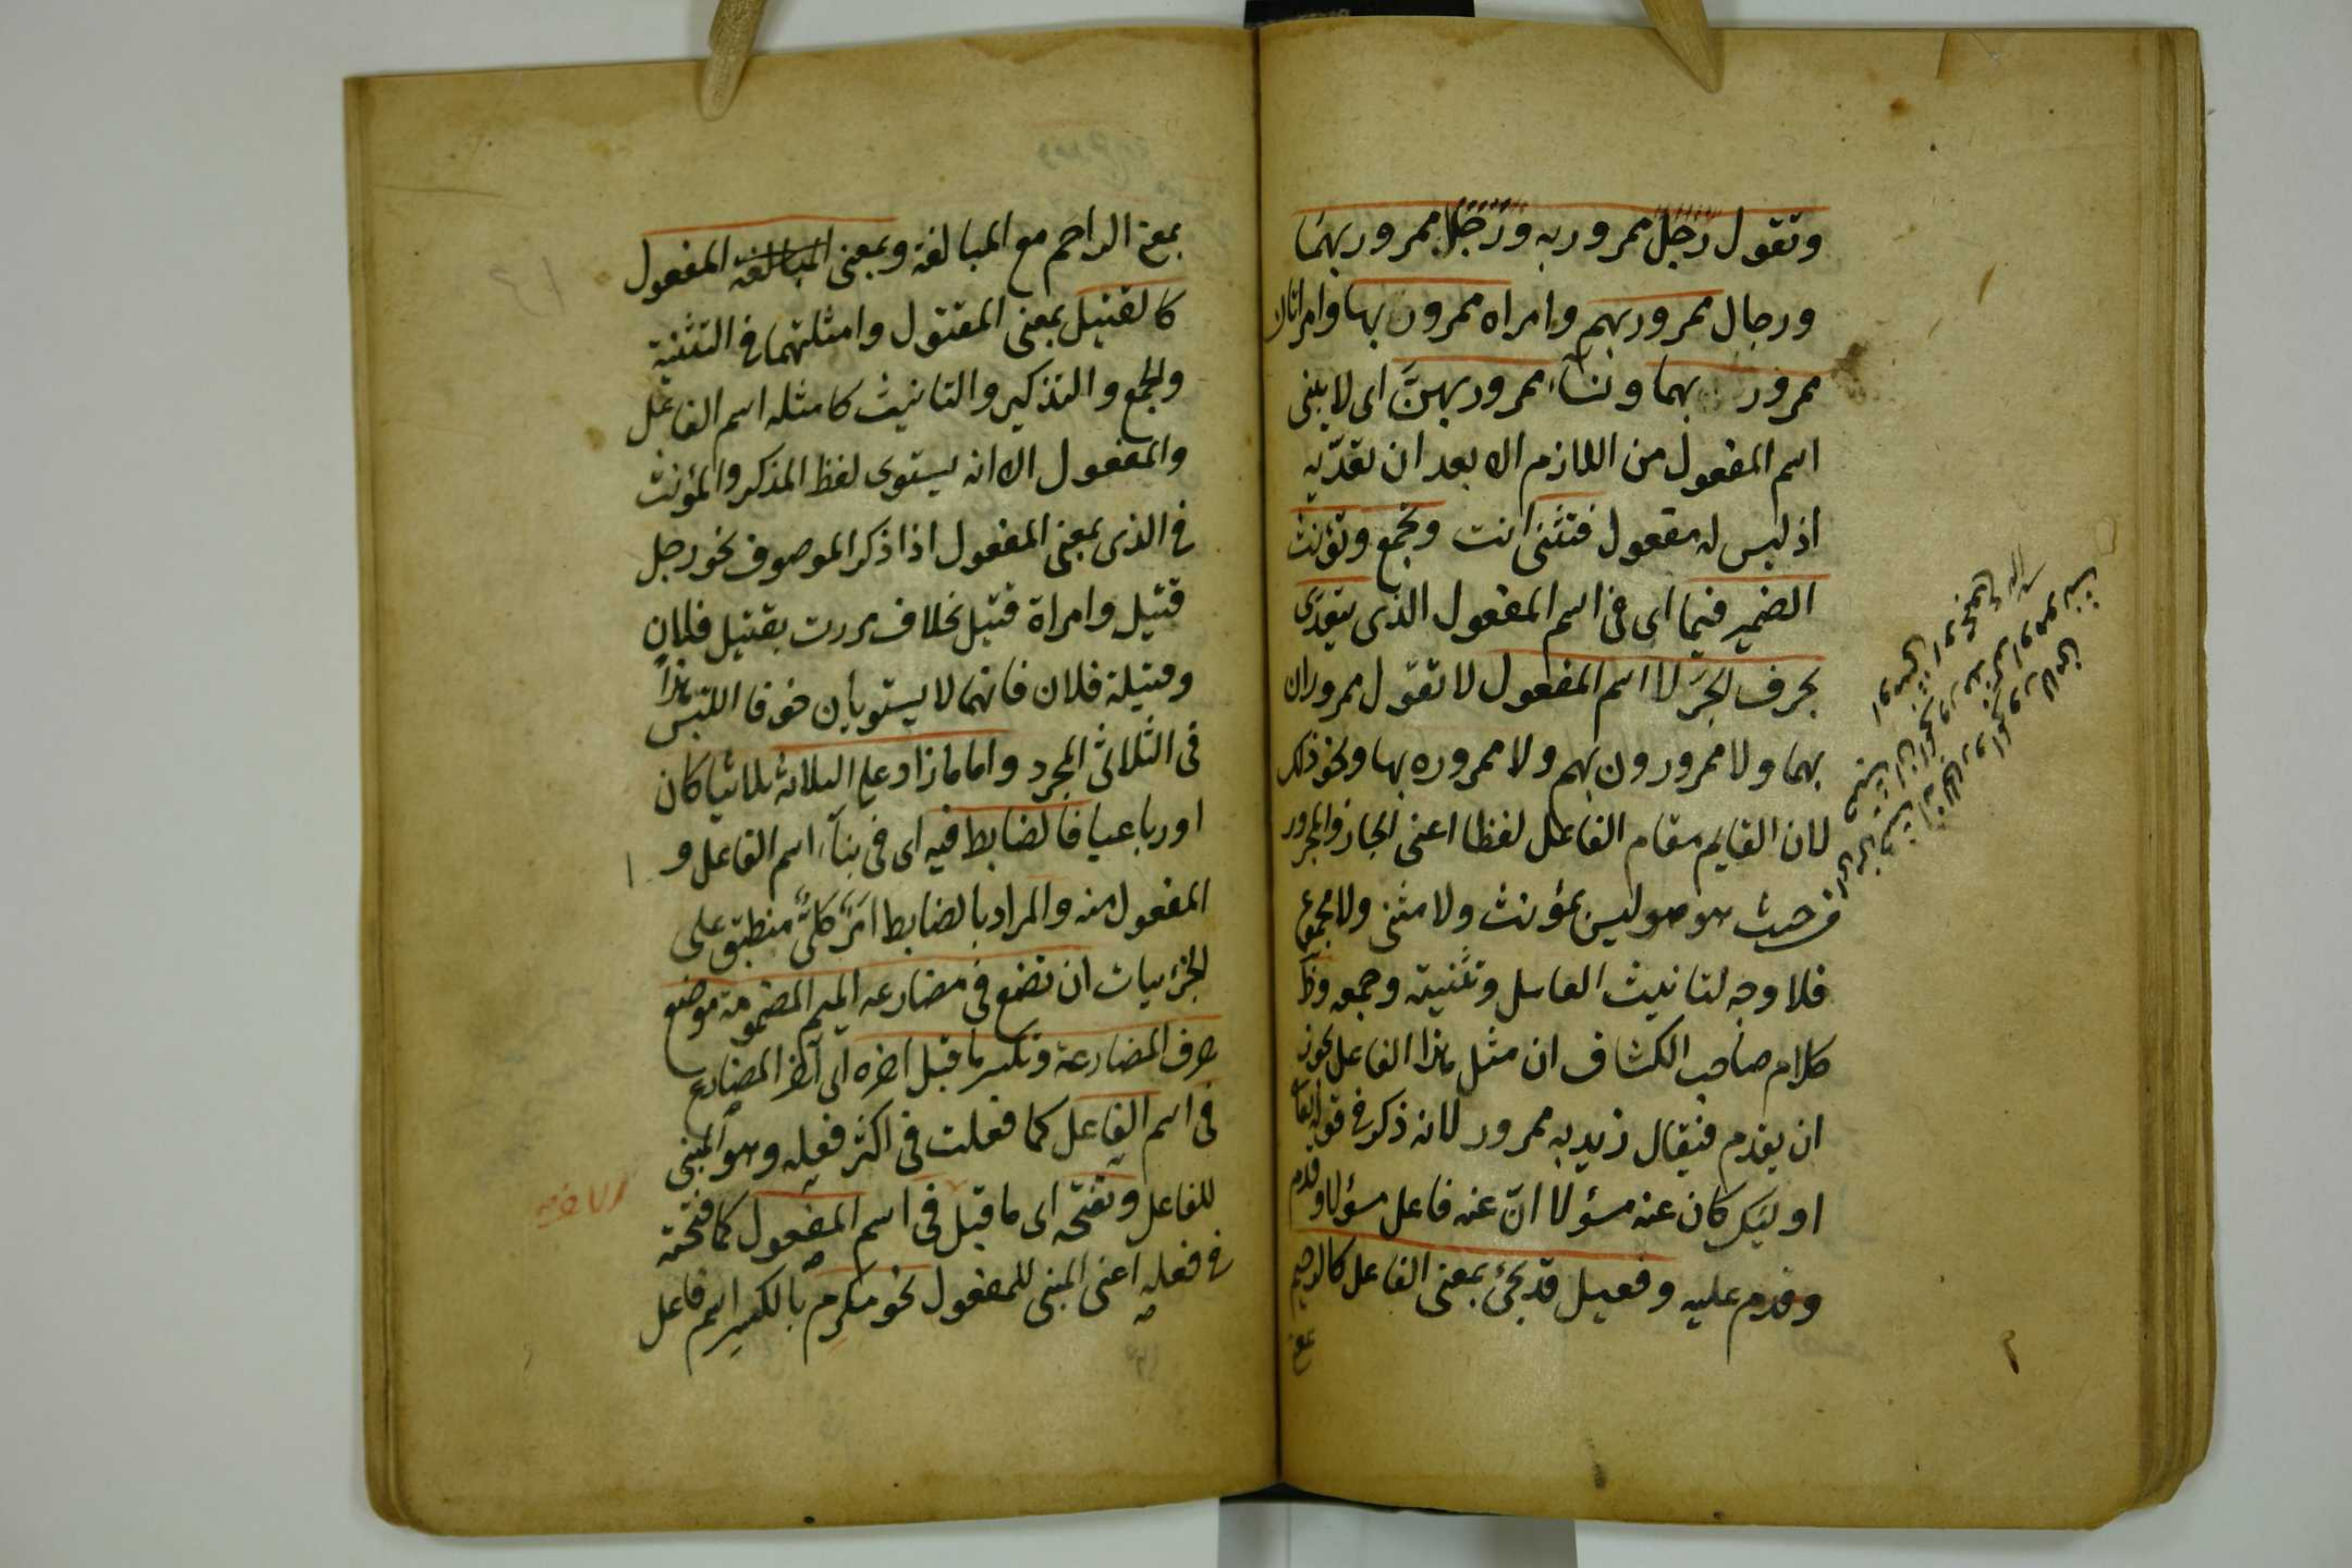 وتقول رجل ممرور به ورجل ممرور بهما
ورجال ممرور بهم وامراه ممرون بها وامراتان
ممرور بهما ونساء ممرور بهن اى لا يبنى
اسم المفعول من اللازم الا بعد ان تعديه
اذ ليس له مفعول فتثنى انت وتجمع وتؤنث
الضمير فيما اى فى اسم المفعول الذى يتعدى
بحرف الجر لا اسم المفعول لا تقول ممروران
بهما ولا ممرورون بهم ولا ممروره بها ونحو ذلك
لان القايم مقام الفاعل لفظا اعنى الجار والمجرور
من حيث هو هو ليس بمؤنث ولا مثنى ولا مجموع
فلا وجه لتانيث العامل وتثنيته وجمعه وظ
كلام صاحب الكشاف ان مثل هذا الفاعل يجوز
ان يقدم فيقال زيد به ممرور لانه ذكر فى قوله تعا
اوليك كان عنه مسؤلا ان عنه فاعل مسؤلا وقدم
وقدم عليه وفعيل قد يجئ بمعنى الفاعل كالرحيم
بمعنى
بمعنى الراحم مع المبالغة وبمعنى المبالغة المفعول
كالقتيل بمعنى المقتول وامثلتهما فى التثنية
والجمع والتذكير والتانيث كامثله اسم الفاعل
والمفعول الا انه يستوى لفظ المذكر والمؤنث
فى الذى بمعنى المفعول اذا ذكر الموصوف نحو رجل
قتيل وامراة قتيل بخلاف مررت بقتيل فلان
وقتيلة فلان فانهما لا يستويان خوفا اللبس هذا
فى الثلاثى المجرد واما ما زاد على الثلاثه ثلاثيا كان
او رباعيا فالضابط فيه اى فى بناء اسم الفاعل و
المفعول منه والمراد بالضابط امر كلى منطبق على
الجزئيات ان تضع فى مضارعه الميم المضمومة موضع
حرف المضارعة وتكسر ما قبل اخره اى آخر المضارع
فى اسم الفاعل كما فعلت فى اكثر فعله وهو المبنى
للفاعل وتفتحه اى ما قبل فى اسم المفعول كما فتحته
فى فعله اعنى المبنى للمفعول نحو مكرم بالكسر اسم فاعل